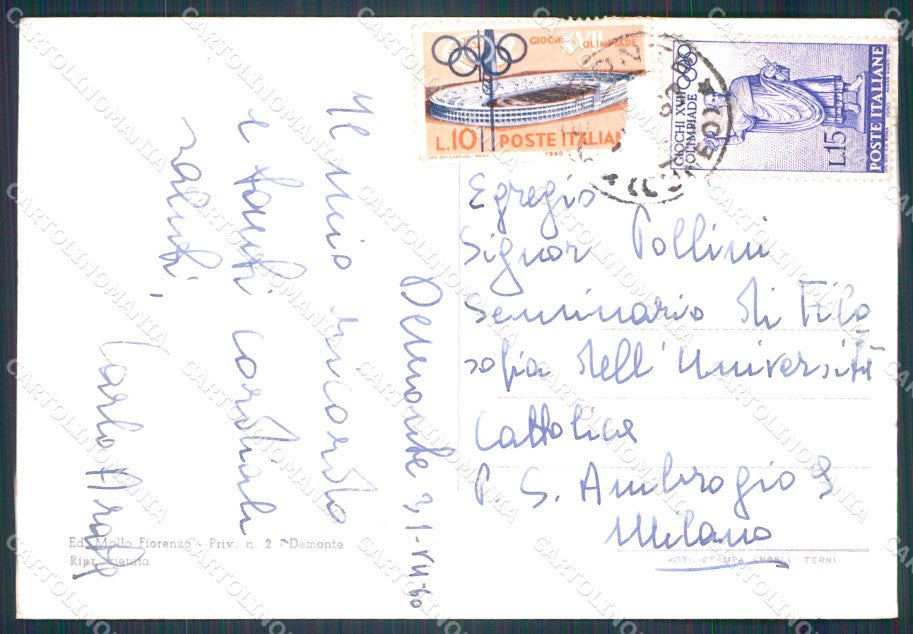 GIOCHI XVII OLIMPIADE
L.10 POSTE ITALIANE
1960
GIOCHI XVII
OLIMPIADE
L.15
POSTE ITALIANE
(CUNEO)
Egregio
Signor Pollini
Seminario di Filo
sofia dell'Università
Cattolica
P. S. Ambrogio 9
Milano
Demonte 31-VII-60
Il mio ricordo
e tanti cordiali
saluti,
Carlo
Ed. Mollo Fiorenzo - Priv. n. 2 - Demonte
Ripr. vietata
FOTO-STAMPA ANGELI - TERNI
CARTOLINOMANIA